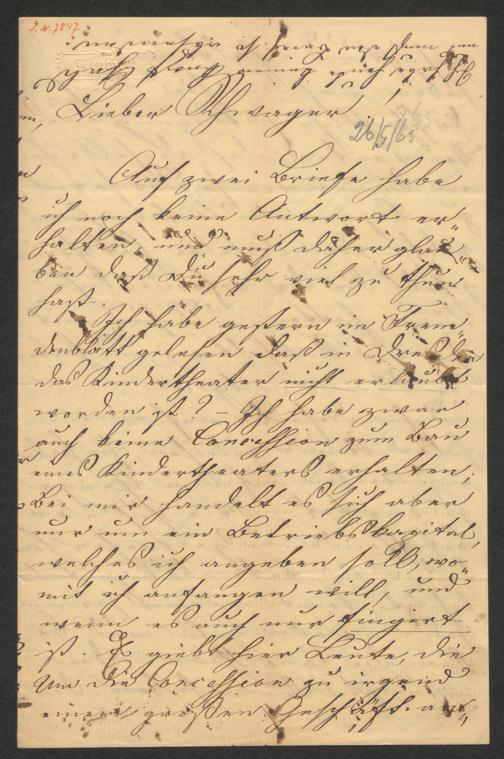 J.N. 7547
Lieber Schwager!
26/5/65
Auf zwei Briefe habe
ich noch keine Antwort er„
halten, und muß daher glau„
ben daß Du sehr viel zu thun
hast.
Ich habe gestern im Frem„
denblatt gelesen daß in Dresden
das Kindertheater nicht erlaubt
worden ist? – Ich habe zwar
auch keine Concession zum Bau
eines Kindertheaters erhalten;
Bei mir handelt es sich aber
nur um ein Betriebskapital,
welches ich angeben soll, wo„
mit ich anfangen will, und
wenn es auch nur fingirt
ist. Es giebt hier Leute, die
um die Concession zu irgend
einem großen Geschäft